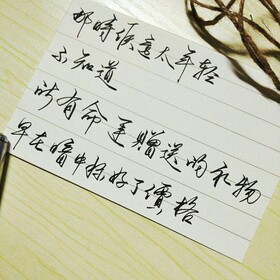 那時候還太年轻
不知道
所有命运赠送的礼物
早在暗中标好了價格